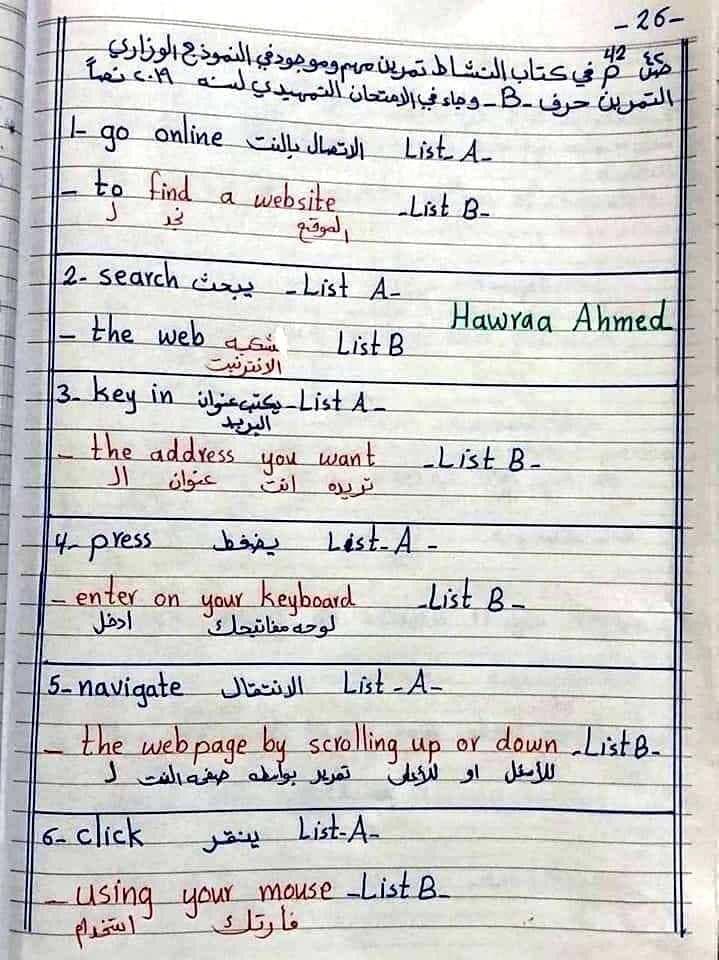 -26-
ص ٤٥ P 42 في كتاب النشاط تمرين مهم وموجود في النموذج الوزاري
التمرين حرف -B- وجاء في الامتحان التمهيدي لسنه ٢٠١٩ نصاً
1- go online الاتصال بالنت List-A-
- to find a website -List B-
لـ نجد الموقع
2- search يبحث -List A-
Hawraa Ahmed
- the web شبكه List B
الانترنيت
3- key in يكتب عنوان -List A-
البريد
- the address you want -List B-
الـ عنوان انت تريده
4- press يضغط List-A-
- enter on your keyboard -List B-
ادخل لوحه مفاتيحك
5- navigate الانتقال List-A-
- the web page by scrolling up or down -List B-
لـ صفحه النت بواسطه تمرير للأعلى او للأسفل
6- click ينقر List-A-
- using your mouse -List B-
استخدام فارتك